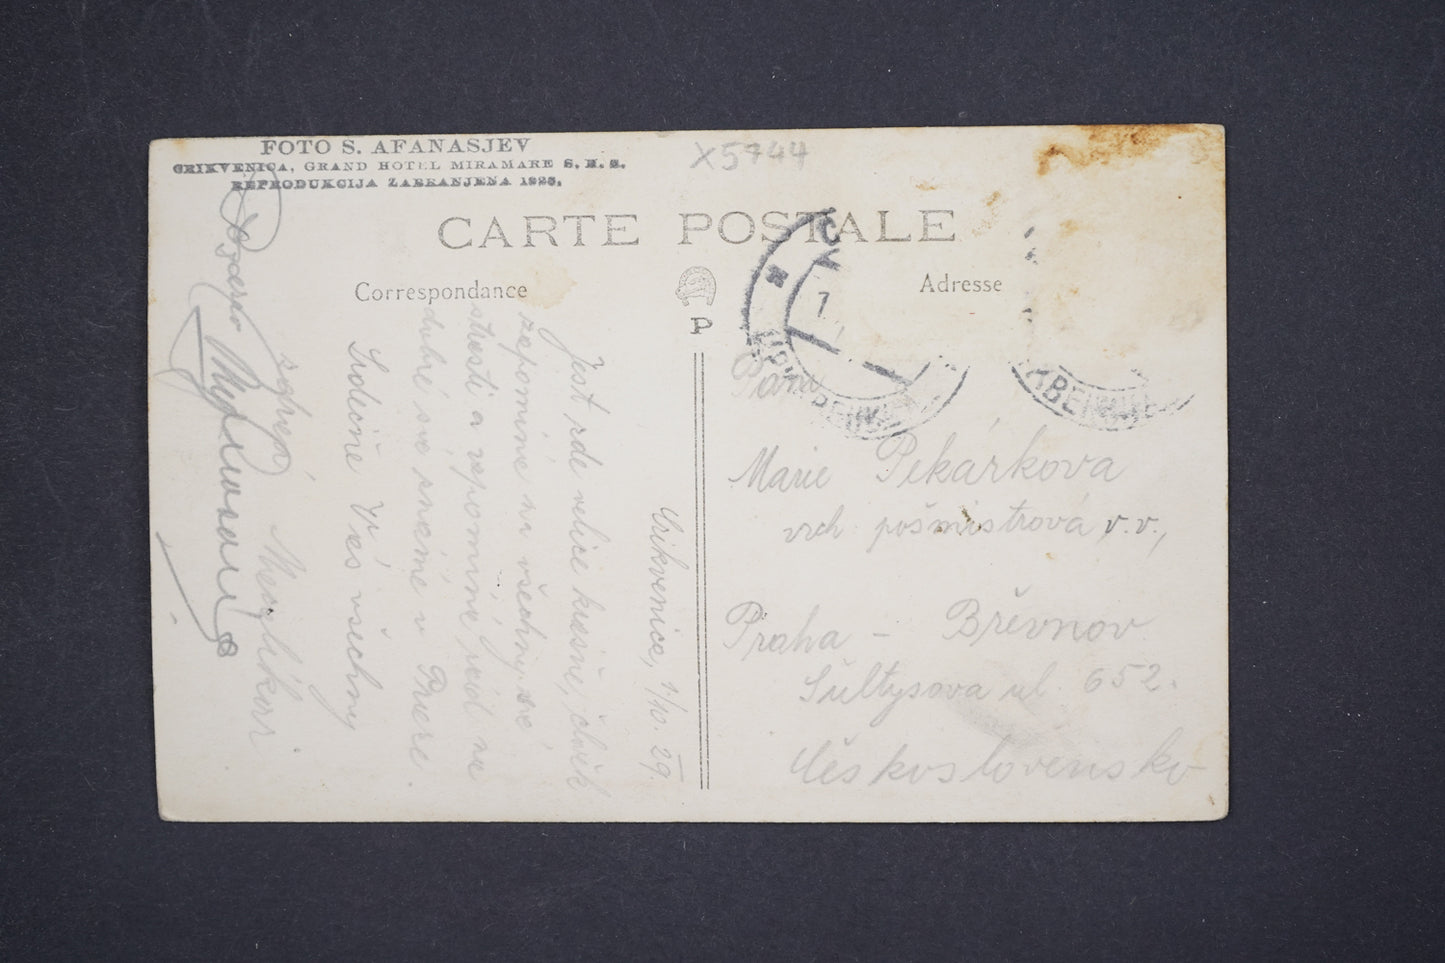 FOTO S. AFANASJEV
CRIKVENICA, GRAND HOTEL MIRAMARE S. H. S.
REPRODUKCIJA ZABRANJENA 1925.
X5744
CARTE POSTALE
Correspondance
Adresse
Crikvenica, 1/10. 29.
Jest zde velice krásně, člověk
zapomíne na všechny své
strasti a vzpomíná, než na
dobré své známé v Praze.
Srdečně Vás všechny
Pozdrav
Paní
Marie Pekárkova
vrch. pošmistrová v.v.,
Praha - Břevnov
Šultysova ul. 652.
Československo